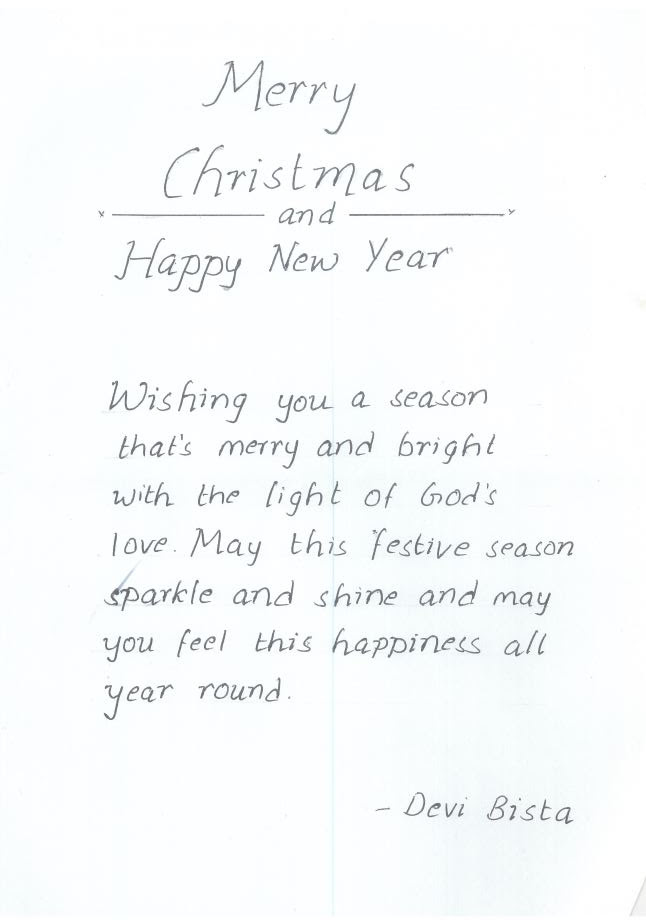 Merry
Christmas
and
Happy New Year
Wishing you a season
that's merry and bright
with the light of God's
love. May this festive season
sparkle and shine and may
you feel this happiness all
year round.
- Devi Bista